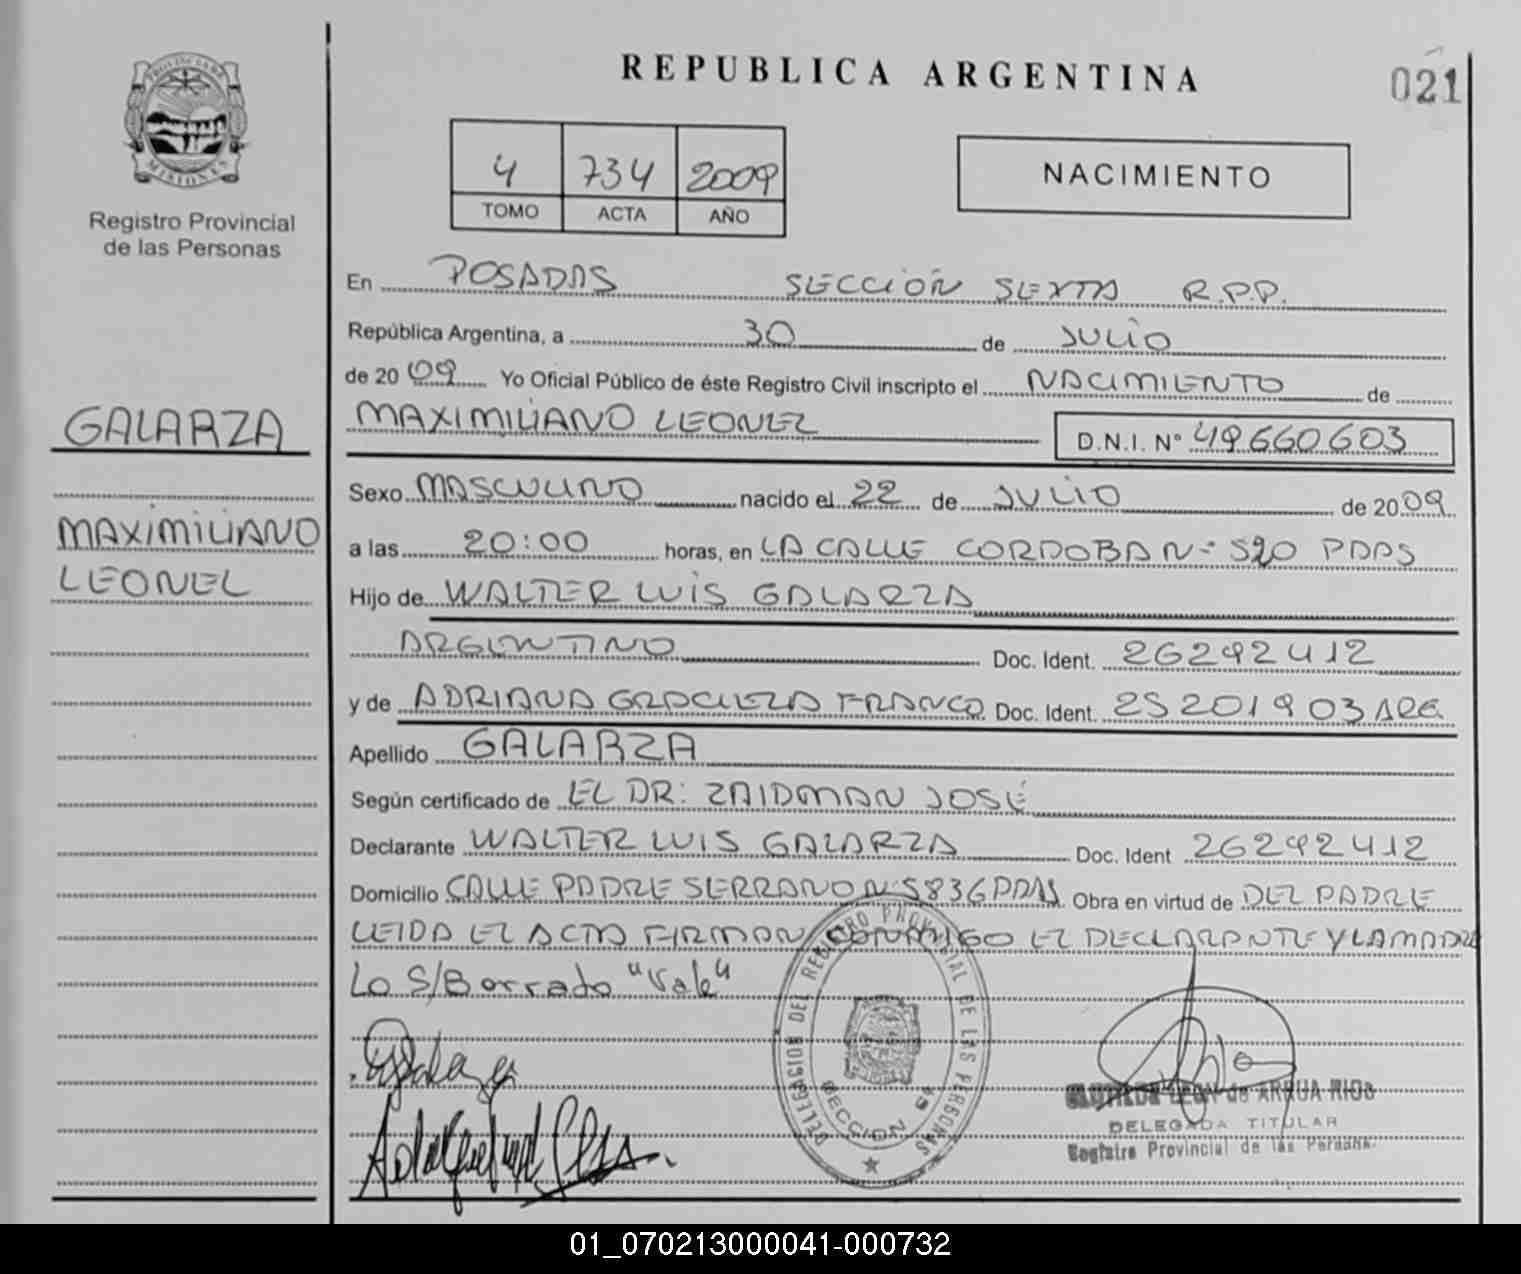 REPUBLICA ARGENTINA
021
PROVINCIA DE
MISIONES
Registro Provincial
de las Personas
4 734 2009
TOMO ACTA AÑO
NACIMIENTO
En POSADAS SECCIÓN SEXTA R.P.P.
República Argentina, a 30 de JULIO
de 2009 Yo Oficial Público de éste Registro Civil inscripto el NACIMIENTO de
GALARZA
MAXIMILIANO LEONEL D.N.I. N° 49660603
Sexo MASCULINO nacido el 22 de JULIO de 2009
MAXIMILIANO
LEONEL
a las 20:00 horas, en LA CALLE CORDOBA N= 520 PDAS
Hijo de WALTER LUIS GALARZA
ARGENTINO Doc. Ident. 26292412
y de ADRIANA GRACIELA FRANCO Doc. Ident. 25201903 ARG
Apellido GALARZA
Según certificado de EL DR: ZAIDMAN JOSÉ
Declarante WALTER LUIS GALARZA Doc. Ident 26292412
Domicilio CALLE PADRE SERRANO N 5836 PDAS Obra en virtud de DEL PADRE
LEIDA EL ACTA FIRMAN CONMIGO EL DECLARANTE Y LA MADRE
Lo S/Borrado "Vale"
DELEGACION DEL REGISTRO PROVINCIAL DE LAS PERSONAS
SECCION 6ª
CLOTILDE LEON de ARRUA RIOS
DELEGADA TITULAR
Registro Provincial de las Personas
01_070213000041-000732